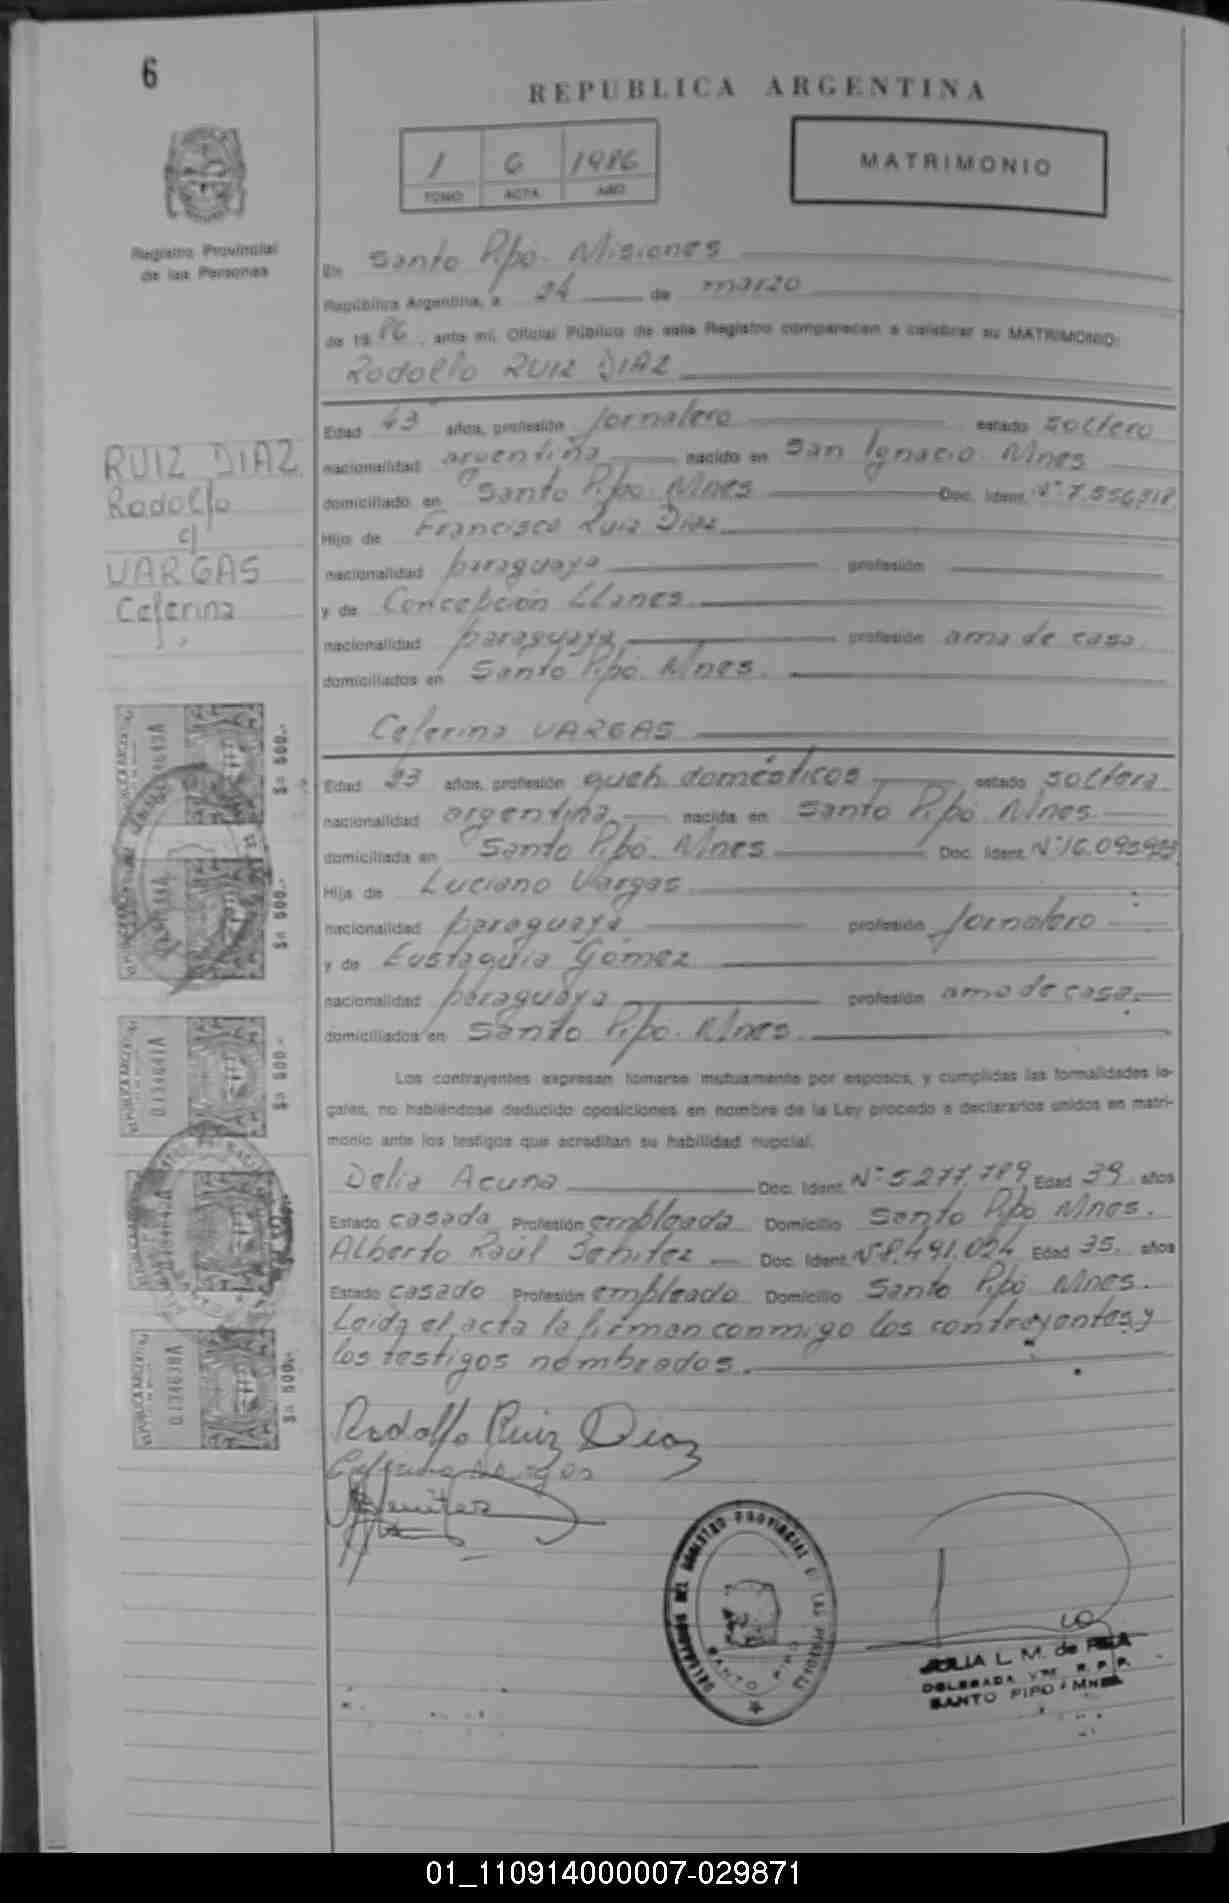 6
REPUBLICA ARGENTINA
1 6 1986
TOMO ACTA AÑO
MATRIMONIO
Registro Provincial
de las Personas
En Santo Pipó. Misiones
República Argentina, a 24 de marzo
de 19 86, ante mí, Oficial Público de este Registro comparecen a celebrar su MATRIMONIO:
Rodolfo RUIZ DIAZ
Edad 43 años, profesión Jornalero estado soltero
nacionalidad argentina nacido en San Ignacio. Mnes
domiciliado en Santo Pipó. Mnes Doc. Ident. Nº 7.556.318
Hijo de Francisco Ruiz Diaz
nacionalidad paraguaya profesión
y de Concepción Llanes
nacionalidad paraguaya profesión ama de casa.
domiciliados en Santo Pipó. Mnes.
RUIZ DIAZ
Rodolfo
c/
VARGAS
Ceferina
Ceferina VARGAS
Edad 23 años, profesión queh. domésticos estado soltera
nacionalidad argentina nacida en Santo Pipó. Mnes
domiciliada en Santo Pipó. Mnes Doc. Ident. Nº 16.095.923
Hija de Luciano Vargas
nacionalidad paraguaya profesión Jornalero
y de Eustaquia Gómez
nacionalidad paraguaya profesión ama de casa.
domiciliados en Santo Pipó. Mnes.
Los contrayentes expresan tomarse mutuamente por esposos, y cumplidas las formalidades le-
gales, no habiéndose deducido oposiciones en nombre de la Ley procedo a declararlos unidos en matri-
monio ante los testigos que acreditan su habilidad nupcial.
Delia Acuna Doc. Ident. Nº 5.277.789 Edad 39 años
Estado casada Profesión empleada Domicilio Santo Pipó Mnes.
Alberto Raúl Benitez Doc. Ident. Nº 8.491.024 Edad 35. años
Estado casado Profesión empleado Domicilio Santo Pipó Mnes.
Leída el acta la firman conmigo los contrayentes y
los testigos nombrados.
REPUBLICA ARGENTINA
$a 500.-
$a 500.-
$a 500.-
$a 500.-
Rodolfo Ruiz Diaz
Ceferina Vargas
Benitez
DELEGACION DEL REGISTRO PROVINCIAL DE LAS PERSONAS
SANTO PIPO
JULIA L. M. de
DELEGADA R. P. P.
SANTO PIPO - MNES.
01_110914000007-029871